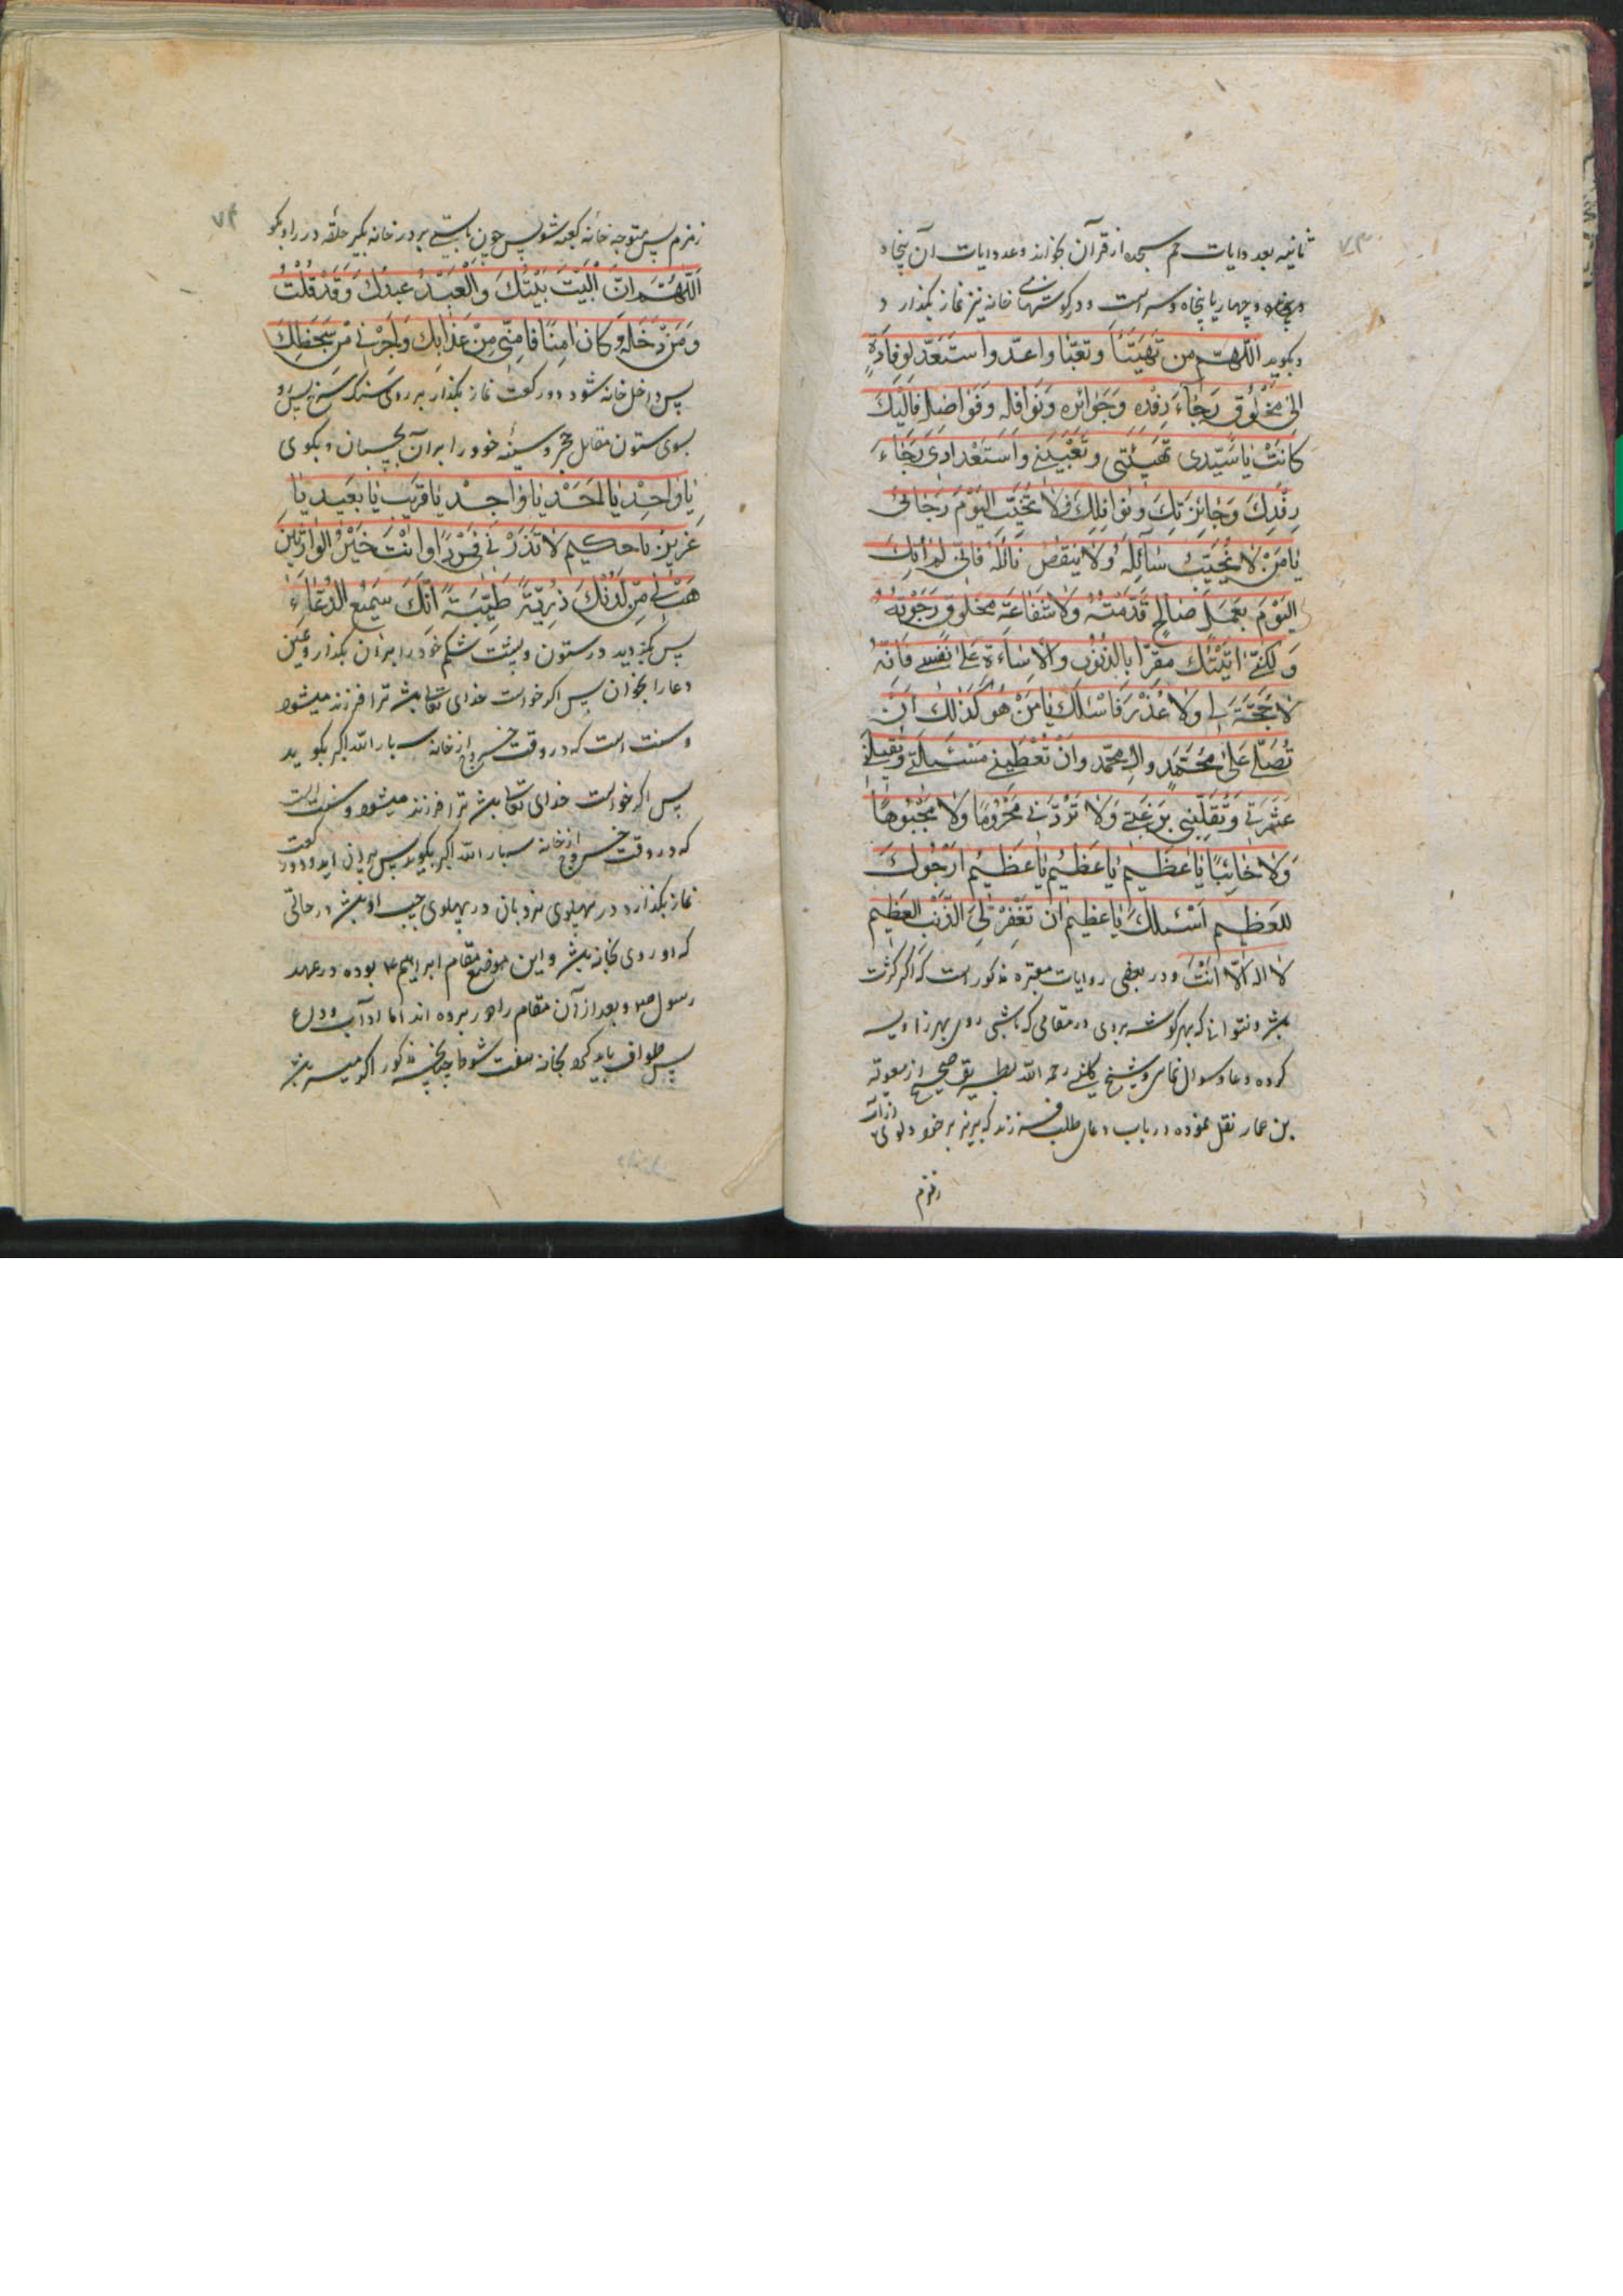 ۷۳
ثانیه بعد دایات حم سجده از قرآن بخواند و عدد ایات آن پنجاه
و پنجاه و چهار یا پنجاه و سه است و در کوشهای خانه نیز نماز بکذارد
و بکوید اللّهمّ من تَهَیَّأَ وتعبّأ واعدّ واستَعَدّ لوِفادَةٍ
اِلیٰ مَخْلُوقٍ رَجٰاءَ رِفْدِهِ وَجَوائِزِهِ وَنَوافِلِهِ وَفَواضِلِهِ فَاِلَیْكَ
کانَتْ یٰا سَیِّدی تَهْیِئَتی وتَعْبِیَتی واسْتِعْدادی رَجٰاءَ
رِفْدِكَ وَجٰائِزَتِكَ ونَوٰافِلِكَ فَلاٰ تُخَیِّبِ الیَوْمَ رَجٰائی
یٰا مَنْ لاٰ یُخَیِّبُ سٰائِلَهُ وَلاٰ یَنقُصُ نٰائِلُهُ فَاِنّی لَمْ اٰتِكَ
الیَوْمَ بِعَمَلٍ صٰالِحٍ قَدَّمْتُهُ وَلاٰ شَفٰاعَةِ مَخلوقٍ رَجَوْتُهُ
وَلکِنّی اَتَیْتُكَ مُقِرّاً بِالذُّنُوبِ والاِسٰاءَةِ عَلیٰ نَفْسی فَاِنَّهُ
لاٰ حُجَّةَ لی وَلاٰ عُذْرَ فَاَسْئَلُكَ یٰا مَنْ هُوَ کَذٰلِكَ اَنْ
تُصَلِّیَ عَلیٰ مُحَمَّدٍ واٰلِ محمّد وَاَنْ تُعْطِیَنی مَسْئَلَتی وتُقیلَنی
عَثْرَتی وَتُقَلِّبَنی بِرَغْبَتی وَلاٰ تَرُدَّنی مَحْرُوماً وَلاٰ مَجْبُوهاً
وَلاٰ خٰائِباً یٰا عَظیمُ یٰا عَظیمُ یٰا عَظیمُ اَرْجُوكَ
لِلعَظیمِ اَسْئَلُكَ یٰا عَظیمُ اَنْ تَغْفِرَ لِیَ الذَّنْبَ العَظیمَ
لاٰ اله اِلّا اَنْتَ و در بعضی روایات معتبره مذکور است که اکر کثرت
باشد و نتواند که بهر کوشه بروی در مقامی که باشی روی بهر زاویه
کرده دعا و سوال نمای و شیخ کلینی رحمه الله بطریق صحیح از معویة
بن عمار نقل نموده در باب دعای طلب فرزند که بریز بر خود دلوی از آب
زمزم
۷۴
زمزم پس متوجه خانه کعبه شو پس چون بایستی بر در خانه بکیر حلقه در را و بکو
اَللّهُمَّ اِنَّ الْبَیْتَ بَیْتُكَ وَالْعَبْدُ عَبْدُكَ وَقَدْ قُلْتَ
وَمَنْ دَخَلَهُ کانَ اٰمِناً فَاٰمِنّی مِنْ عَذٰابِكَ وَاَجِرْنی مِنْ سَخَطِكَ
پس داخل خانه شو و دو رکعت نماز بکذار بر روی سنک سرخ پس برو
بسوی ستون مقابل حجر و سینه خود را بر آن بچسبان و بکوی
یٰا وٰاحِدُ یٰا اَحَدُ یٰا وٰاجِدُ یٰا قَریبُ یٰا بَعیدُ یٰا
عَزیزُ یٰا حکیمُ لاٰ تَذَرْنی فَرْداً وَاَنْتَ خَیْرُ الوٰارِثینَ
هَبْ لی مِنْ لَدُنْكَ ذُرِّیَّةً طَیِّبَةً اِنَّكَ سَمیعُ الدُّعٰاءِ
پس بکردید در ستون و پشت و شکم خود را بر آن بکذار و همین
دعا را بخوان پس اکر خواست خدای تعالی باشد ترا فرزند میشود
و سنت است که در وقت خروج از خانه سه بار الله اکبر بکوید
پس اکر خواست خدای تعالی باشد ترا فرزند میشود و سنت است
که در وقت خروج از خانه سه بار الله اکبر بکوید پس بیرون آید و دو رکعت
نماز بکذارد در پهلوی نردبان در پهلوی چپ او باشد در حالتی
که او روی بخانه باشد و این موضع مقام ابراهیم ع بوده در عهد
رسول ص و بعد از آن مقام را دور برده اند اما آداب وداع
پس طواف باید کرد بخانه هفت شوط چنانچه مذکور اکر میسر باشد